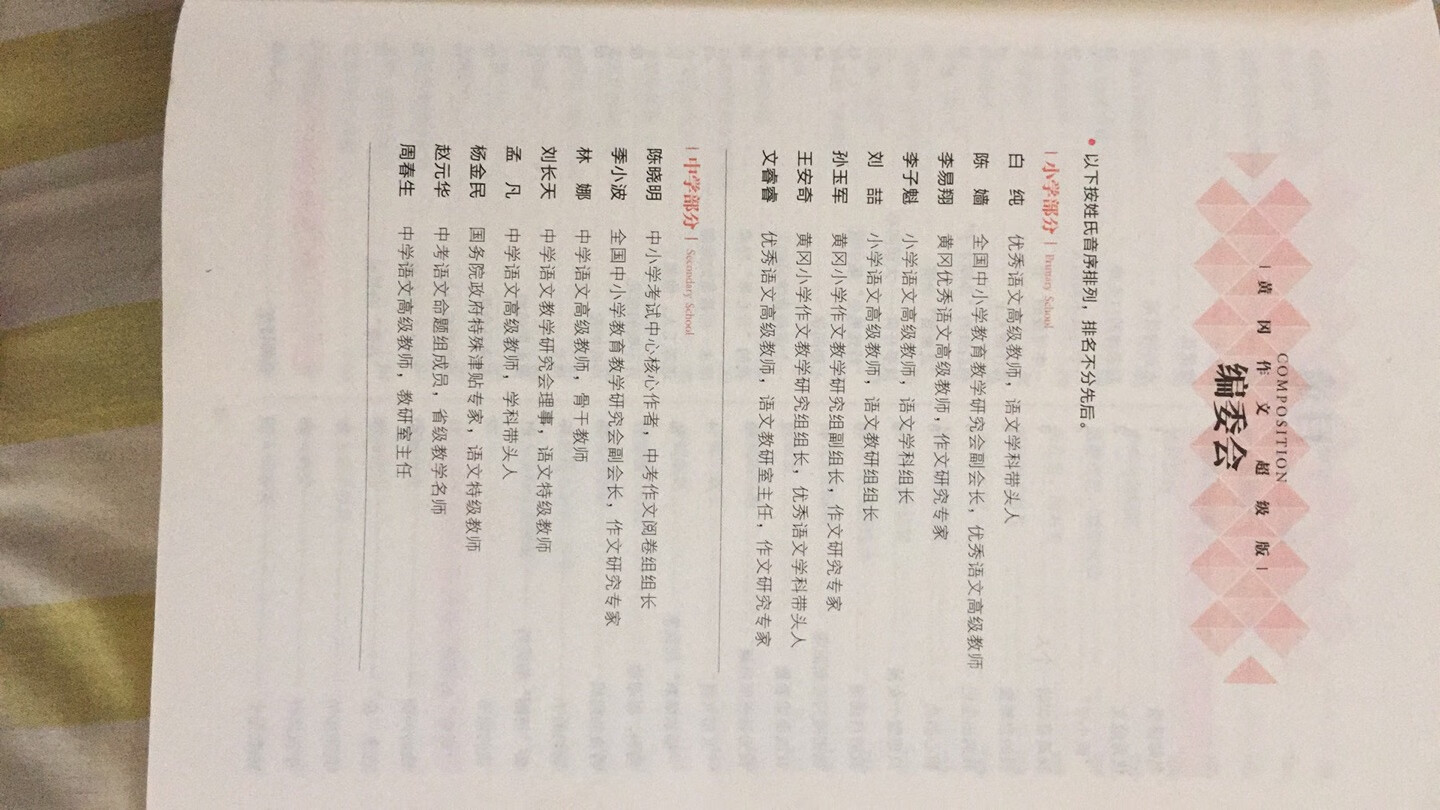 |黄冈作文超级版|
COMPOSITION
编委会
以下按姓氏音序排列，排名不分先后。
|小学部分| Primary School
白 纯 优秀语文高级教师，语文学科带头人
陈 嫱 全国中小学教育教学研究会副会长，优秀语文高级教师
李易翔 黄冈优秀语文高级教师，作文研究专家
李子魁 小学语文高级教师，语文学科组长
刘 喆 小学语文高级教师，语文教研组组长
孙玉军 黄冈小学作文教学研究组副组长，作文研究专家
王安奇 黄冈小学作文教学研究组组长，优秀语文学科带头人
文睿睿 优秀语文高级教师，语文教研室主任，作文研究专家
|中学部分| Secondary School
陈晓明 中小学考试中心核心作者，中考作文阅卷组组长
季小波 全国中小学教育教学研究会副会长，作文研究专家
林 娜 中学语文高级教师，骨干教师
刘长天 中学语文教学研究会理事，语文特级教师
孟 凡 中学语文高级教师，学科带头人
杨金民 国务院政府特殊津贴专家，语文特级教师
赵元华 中考语文命题组成员，省级教学名师
周春生 中学语文高级教师，教研室主任